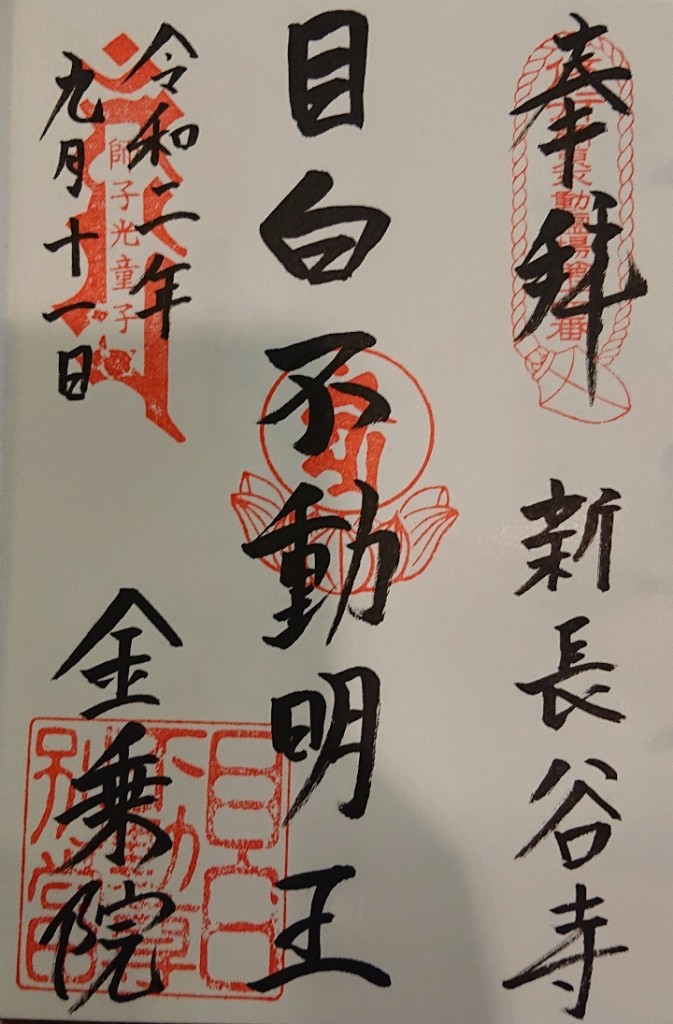 奉拝
新長谷寺
目白不動明王
令和二年
九月十一日
師子光童子
金乗院